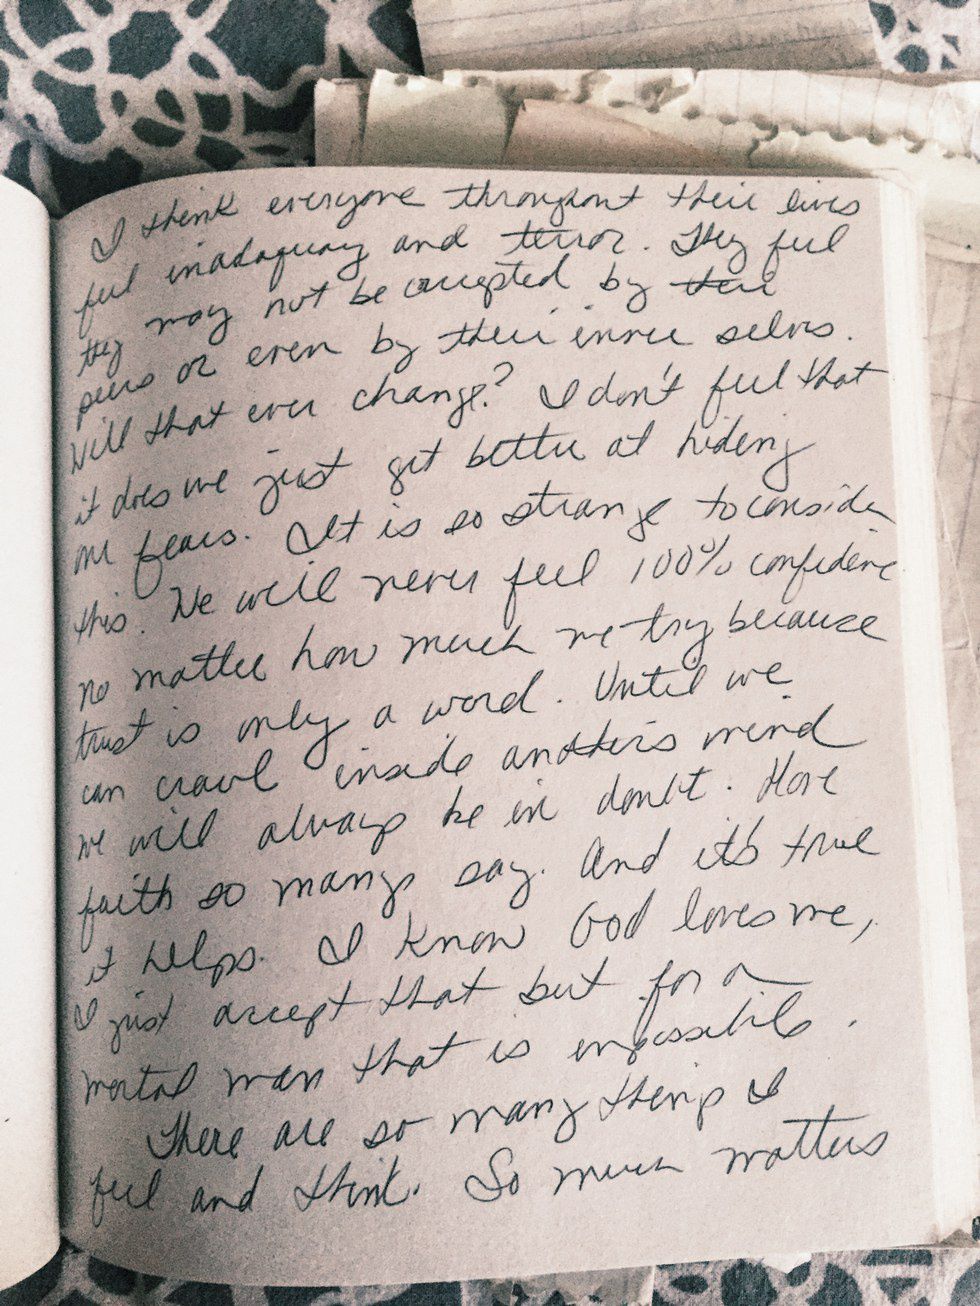 I think everyone throughout their lives
feel inadaquacy and terror. They feel
they may not be accepted by their
peers or even by their inner selves.
Will that ever change? I don't feel that
it does we just get better at hiding
our fears. It is so strange to consider
this. We will never feel 100% confidence
no matter how much we try because
trust is only a word. Until we
can crawl inside anothers mind
we will always be in doubt. Have
faith so many say. And it's true
it helps. I know God loves me,
I just accept that but for a
mortal man that is impossible.
There are so many things I
feel and think. So much matters